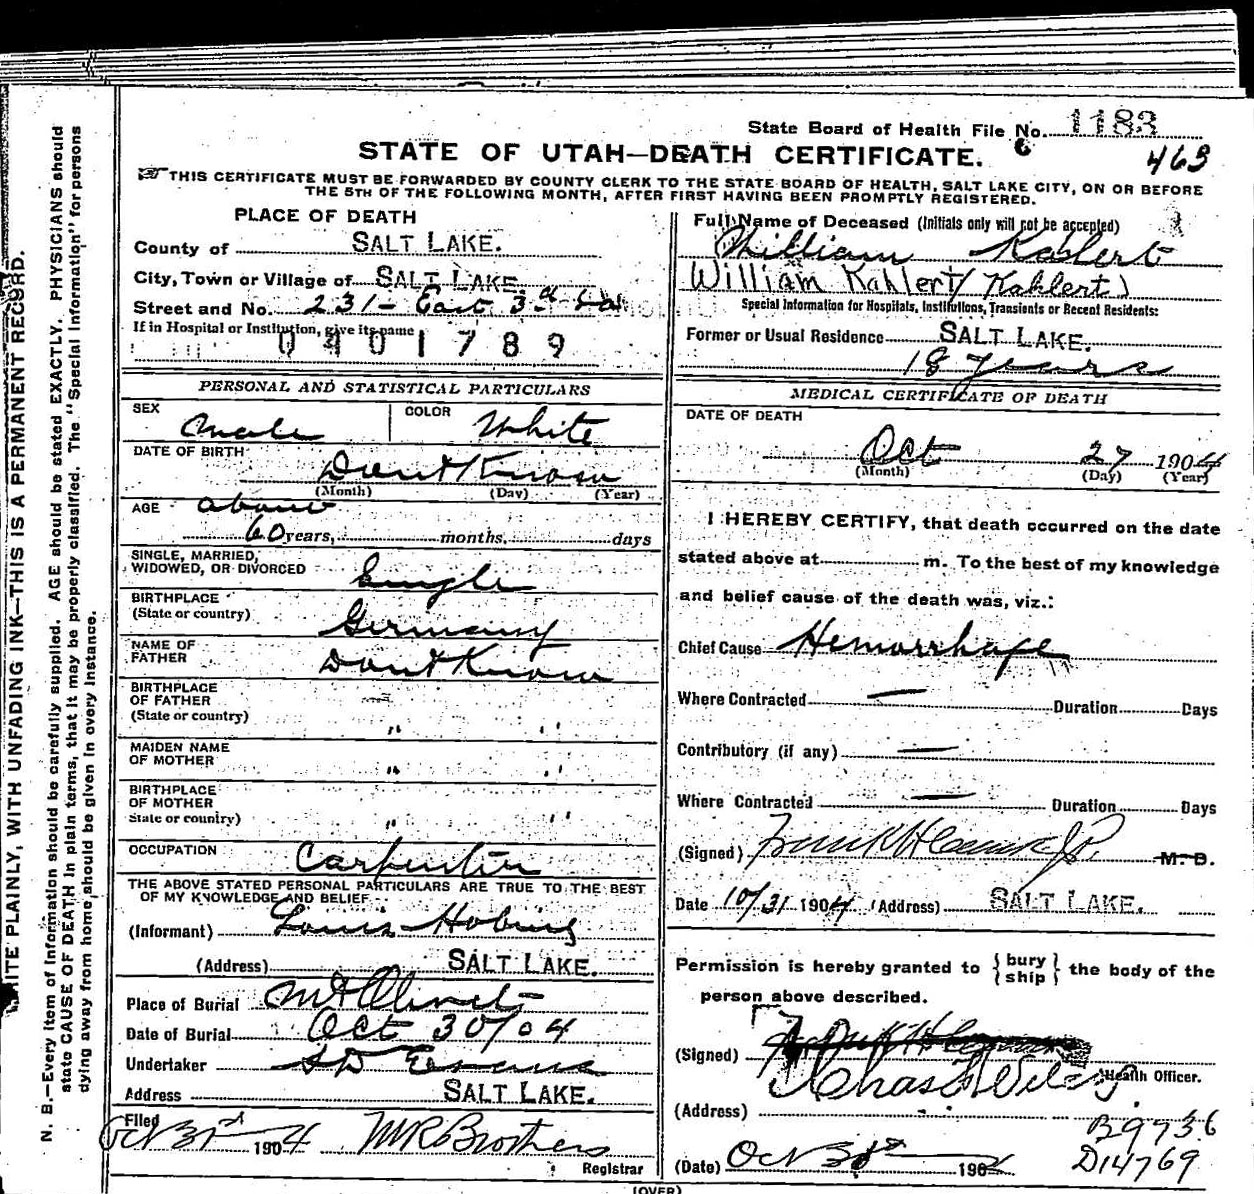 State Board of Health File No. 1183
463
STATE OF UTAH—DEATH CERTIFICATE.
THIS CERTIFICATE MUST BE FORWARDED BY COUNTY CLERK TO THE STATE BOARD OF HEALTH, SALT LAKE CITY, ON OR BEFORE
THE 5TH OF THE FOLLOWING MONTH, AFTER FIRST HAVING BEEN PROMPTLY REGISTERED.
WRITE PLAINLY, WITH UNFADING INK—THIS IS A PERMANENT RECORD.
N. B.—Every item of information should be carefully supplied. AGE should be stated EXACTLY. PHYSICIANS should
state CAUSE OF DEATH in plain terms, that it may be properly classified. The "Special Information" for persons
dying away from home, should be given in every instance.
PLACE OF DEATH
County of SALT LAKE.
City, Town or Village of SALT LAKE.
Street and No. 231 - East 3rd
If in Hospital or Institution, give its name
0401789
PERSONAL AND STATISTICAL PARTICULARS
SEX Male COLOR White
DATE OF BIRTH Dont Know
(Month) (Day) (Year)
AGE about
60 years, months, days
SINGLE, MARRIED,
WIDOWED, OR DIVORCED Single
BIRTHPLACE
(State or country) Germany
NAME OF
FATHER Dont Know
BIRTHPLACE
OF FATHER
(State or country) " "
MAIDEN NAME
OF MOTHER " "
BIRTHPLACE
OF MOTHER
State or country) " "
OCCUPATION Carpenter
THE ABOVE STATED PERSONAL PARTICULARS ARE TRUE TO THE BEST
OF MY KNOWLEDGE AND BELIEF
(Informant) Louis
(Address) SALT LAKE.
Place of Burial Mt Olivet
Date of Burial Oct 30/04
Undertaker S D Evans
Address SALT LAKE.
Filed
Oct 31st 1904 M R Brothers
Registrar
Full Name of Deceased (Initials only will not be accepted)
William Kahlert
William Kahlert (Kahlert)
Special Information for Hospitals, Institutions, Transients or Recent Residents:
Former or Usual Residence SALT LAKE.
18 years
MEDICAL CERTIFICATE OF DEATH
DATE OF DEATH
Oct 27 1904
(Month) (Day) (Year)
I HEREBY CERTIFY, that death occurred on the date
stated above at m. To the best of my knowledge
and belief cause of the death was, viz.:
Chief Cause Hemorrhage
Where Contracted — Duration Days
Contributory (if any) —
Where Contracted — Duration Days
(Signed) Frank H J.P. M. D.
Date 10/31 1904 (Address) SALT LAKE.
Permission is hereby granted to { bury
ship } the body of the
person above described.
(Signed) Chas
Health Officer.
(Address)
B9736
(Date) Oct 190
D14769
(OVER)